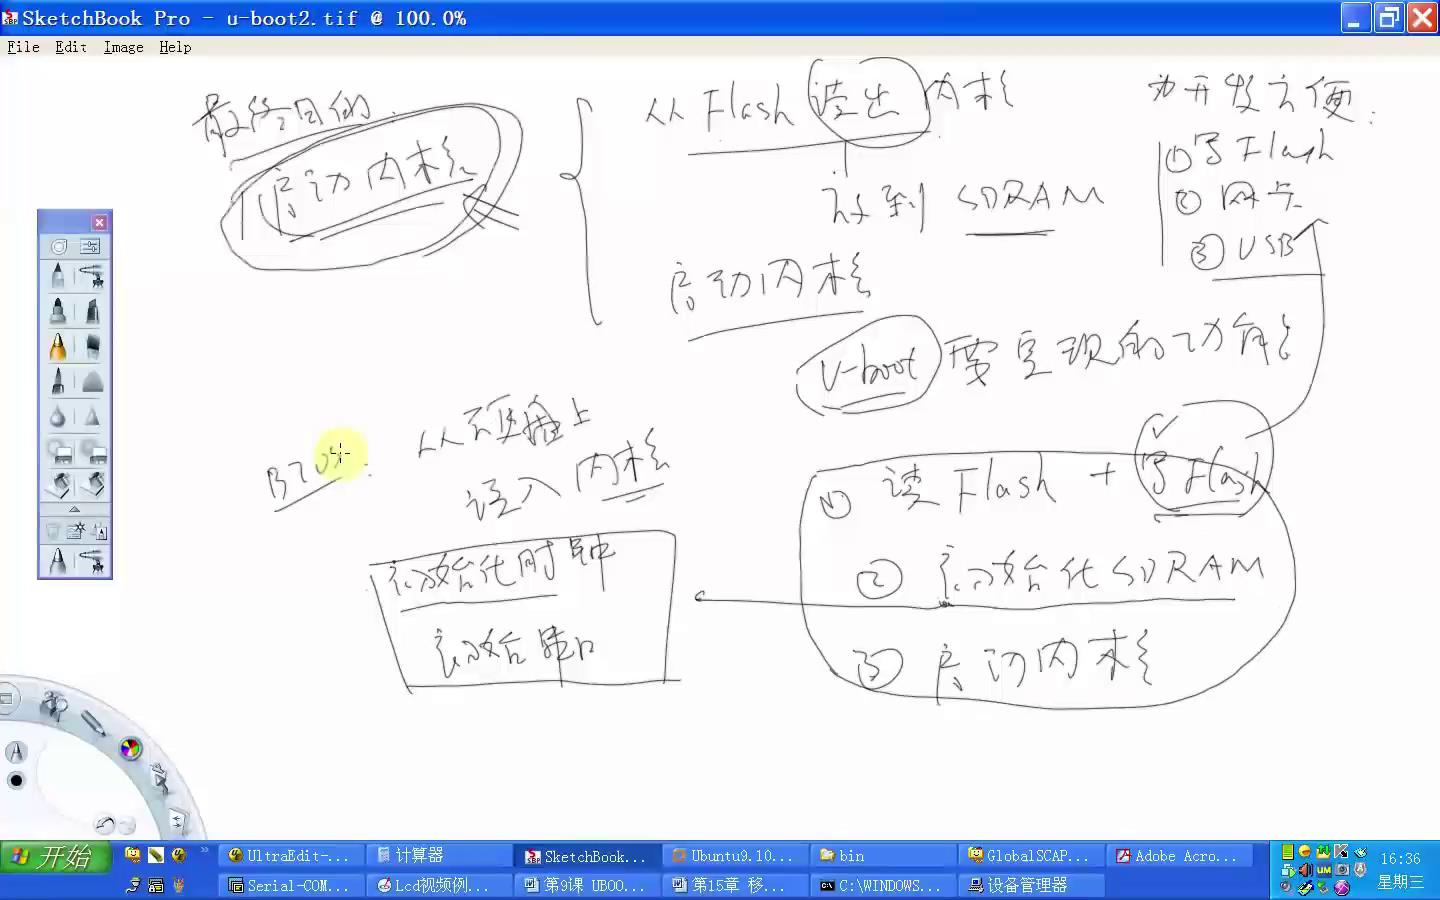 SketchBook Pro - u-boot2.tif @ 100.0%
File Edit Image Help
最终目的
启动内核
从Flash读出内核
读到SDRAM
启动内核
为开发方便:
①写Flash
②网卡
③USB
U-boot要实现的功能
BIOS:
从硬盘上
读入内核
初始化时钟
初始串口
①读Flash + 写Flash
②初始化SDRAM
③启动内核
开始
UltraEdit-...
计算器
SketchBook...
Ubuntu9.10...
bin
GlobalSCAP...
Adobe Acro...
16:36
Serial-COM...
Lcd视频例...
第9课 UBOO...
第15章 移...
C:\WINDOWS...
设备管理器
星期三